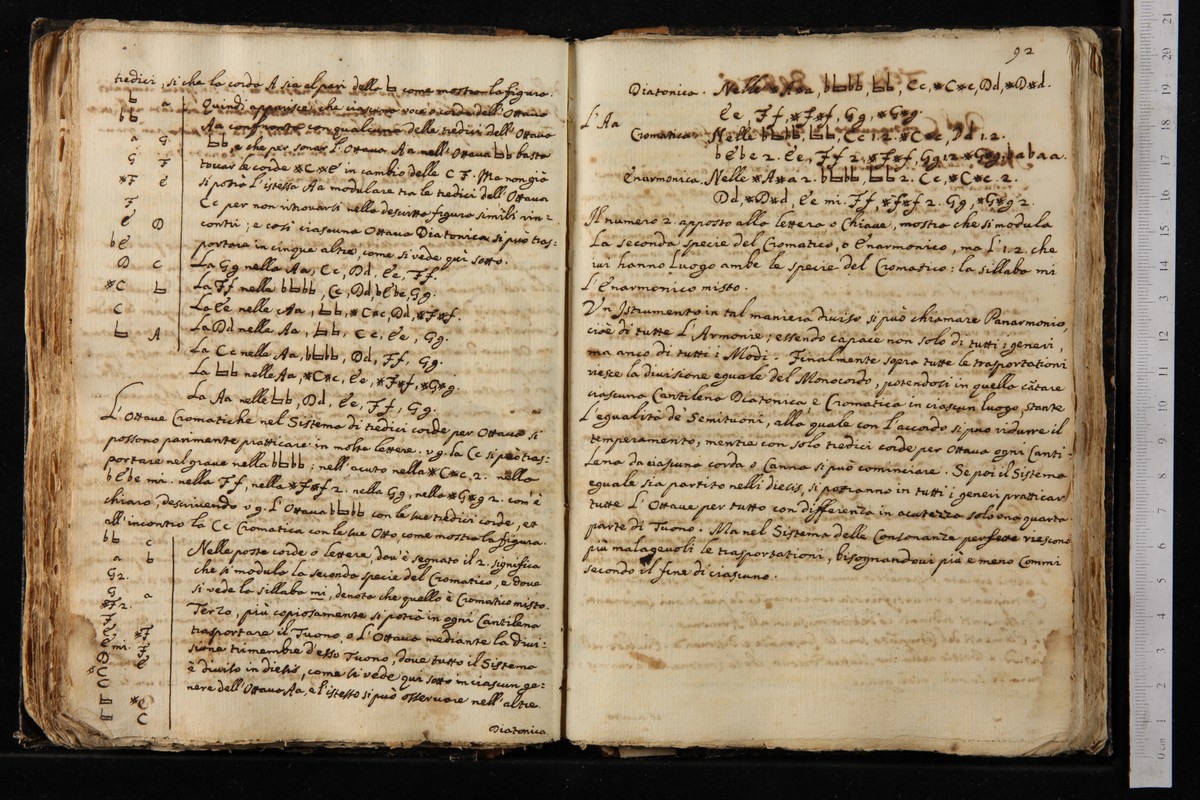 tredici, si che la corda A sia al pari della ♭ come mostra la figura.
♭ a Quindi apparisce che ciascuna voce o corde dell'Ottava
♭♭ Aa confronta con qualcuna delle tredici dell'Ottava
a G ♭♭, e che per sonar L'Ottava Aa nell'Ottava ♭♭ basta
G F tovar le corde *C *E in cambio delle C F. Ma non già
*F E si potrà L'istessa Aa modulare tra le tredici dell'Ottava
F Cc per non ritrovarsi nella descritta figura simili rin-
E D contri; e così ciascuna Ottava Diatonica si può tras-
bE portare in cinque altre, come si vede qui sotto.
D C La Gg nella Aa, Cc, Dd, Ee, Ff.
*C ♭ La Ff nella ♭♭♭♭, Cc, Dd, bEbe, Gg.
C La Ee nelle Aa, ♭♭, *C*c, Dd, *F*f.
♭ A La Dd nelle Aa, ♭♭, Cc, Ee, Gg.
La Cc nelle Aa, ♭♭♭♭, Dd, Ff, Gg.
La ♭♭ nelle Aa, *C*c, Ee, *F*f, *G*g.
La Aa nelle ♭♭, Dd, Ee, Ff, Gg.
L'Ottave Cromatiche nel Sistema di tredici corde per Ottava si
possono parimente pratticare in molte lettere. v.g. la Cc si può tras-
portare nel grave nella ♭♭♭♭; nell'acuto nella *C*c. 2. nella
bEbe mi. nella Ff, nella *F*f 2. nella Gg, nella *G*g 2. com'è
chiaro, descrivendo v.g. L'Ottava ♭♭♭♭ con le sue tredici corde, et
all'incontro la Cc Cromatica con le sue Otto, come mostra la figura.
♭♭ c Nelle poste corde o lettere, dov'è segnato il 2. significa
a b che si modula la seconda specie del Cromatico, e dove
G2. si vede la sillaba mi, denota che quello è Cromatico misto.
G a Terzo, più copiosamente si potrà in ogni Cantilena
*F2. trasportare il Tuono o L'Ottava mediante la divi-
F *F sione trimembre d'esso Tuono, dove tutto il Sistema
E mi. F è diviso in diesis, come si vede qui sotto in ciascun ge-
D E nere dell'Ottava Aa, e l'istesso si può osservare nell'altre.
C
*C
♭ C
Diatonica
92
Diatonica. Nelle *A*a 2, ♭♭♭♭, ♭♭, Cc, *C*c, Dd, *D*d.
Ee, Ff, *F*f, Gg, *G*g.
L'Aa Cromatica. Nelle ♭♭♭♭, ♭♭, Cc 1.2. *C*c, Dd 1.2.
bEbe 2. Ee, Ff 2. *F*f, Gg 1.2 *G*g, babaa.
Enarmonica. Nelle *A*a 2. ♭♭♭♭, ♭♭ 2. Cc, *C*c. 2.
Dd, *D*d, Ee mi. Ff, *F*f 2. Gg, *G*g 2.
Il numero 2 apposto alla lettera o Chiave, mostra che si modula
La seconda specie del Cromatico, o Enarmonico, ma L'1.2. che
ivi hanno luogo ambe le specie del Cromatico: la sillaba mi
L'Enarmonico misto.
Un Istrumento in tal maniera diviso si può chiamare Panarmonio,
cioè di tutte L'Armonie; essendo capace non solo di tutti i generi,
ma anco di tutti i Modi. Finalmente sopra tutte le trasportationi
riesce la divisione eguale del Monocordo, potendosi in quella cātare
ciascuna Cantilena Diatonica, e Cromatica in ciascun luogo, stante
L'egualità de' Semituoni, alla quale con l'accordo si può ridurre il
temperamento, mentre con solo tredici corde per Ottava ogni Canti-
Lena da ciascuna corda o Canna si può cominciare. Se poi il Sistema
eguale sia partito nelli diesis, si potranno in tutti i generi pratticar
tutte L'Ottave per tutto con differenza in acutezza solo una quarta
parte di Tuono. Ma nel Sistema delle Consonanze perfette riescono
più malagevoli le trasportationi, bisognandovi più e meno Commi
secondo il fine di ciascuno.